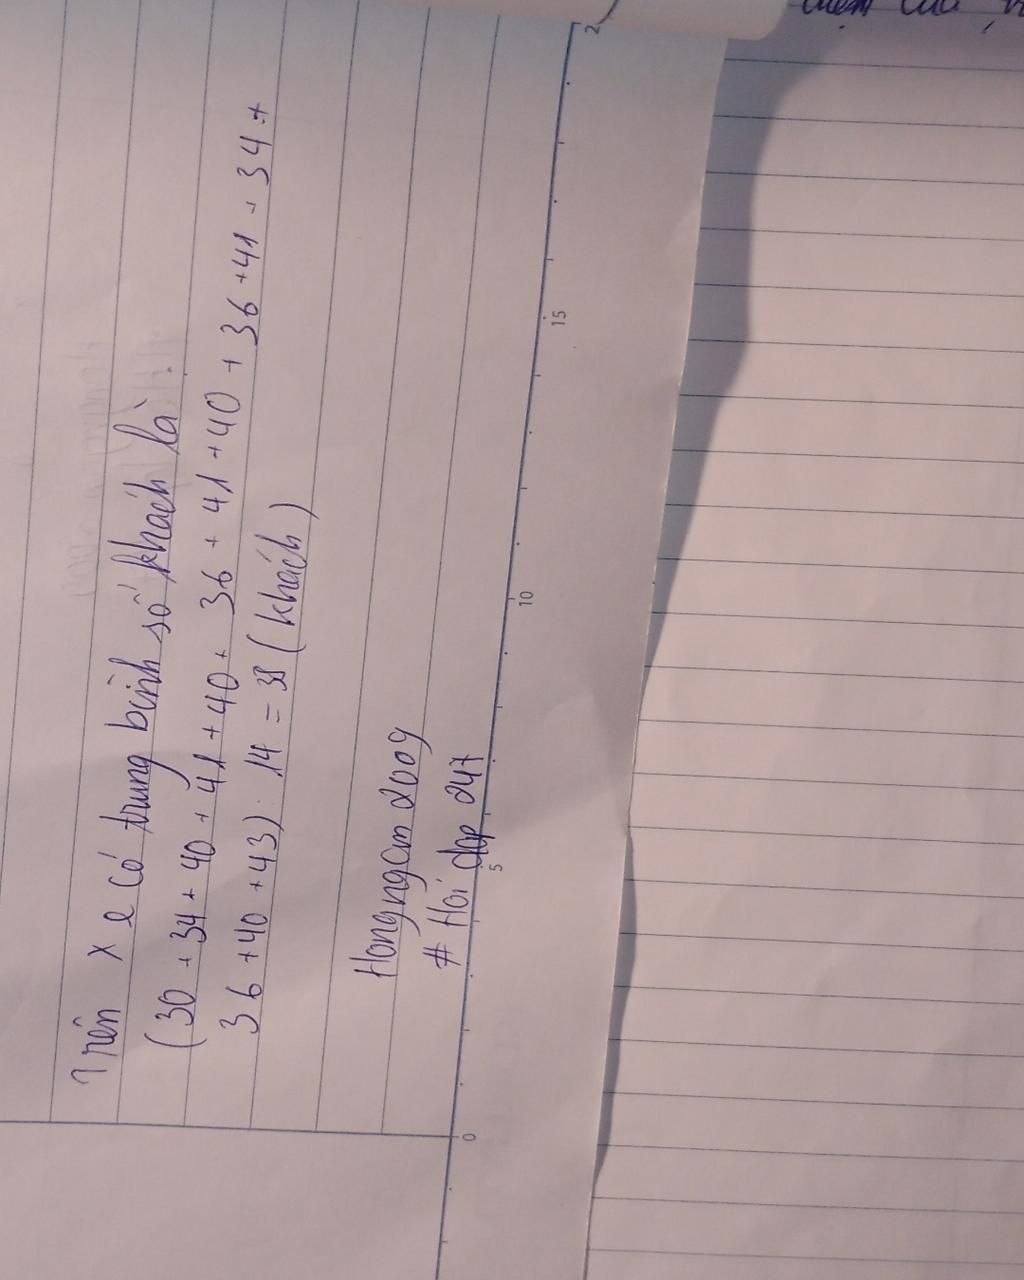 Trên xe có trung bình số khách là:
(30 + 34 + 40 + 41 + 40 + 36 + 41 + 40 + 36 + 41 + 34 +
36 + 40 + 43) : 14 = 38 (khách)
Hongngan 2009
# Hoi dap 247
0 5 10 15 2